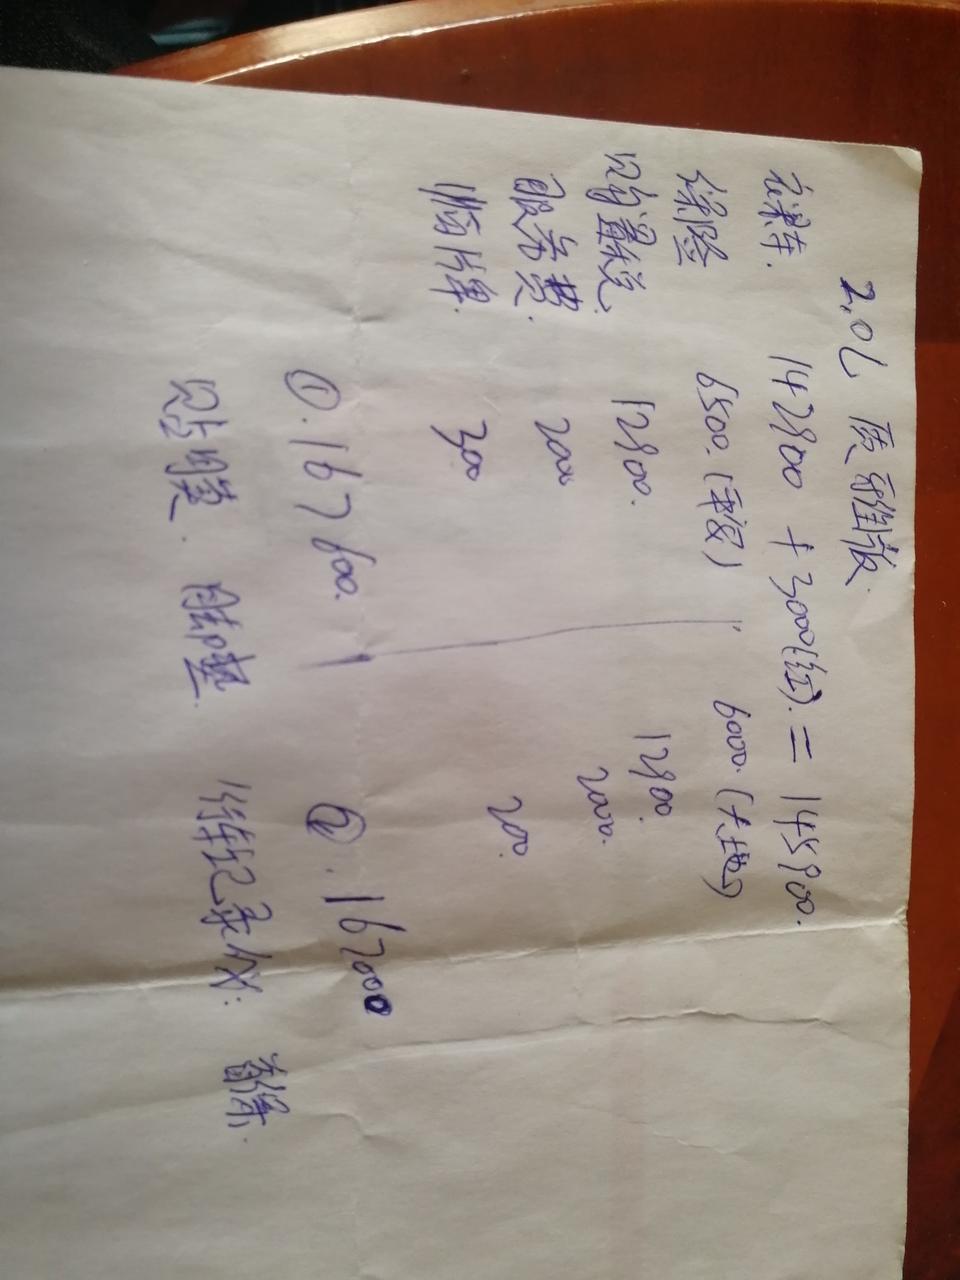 2.0L 质雅版.
裸车. 142900 + 3000(红). = 145900.
保险 6500.(平安) 6000.(太平)
购置税. 12900. 12900.
服务费. 2000 2000.
临牌. 300 200.
①.167600. ②.167000
贴膜. 脚垫. 行车记录仪: 首保.